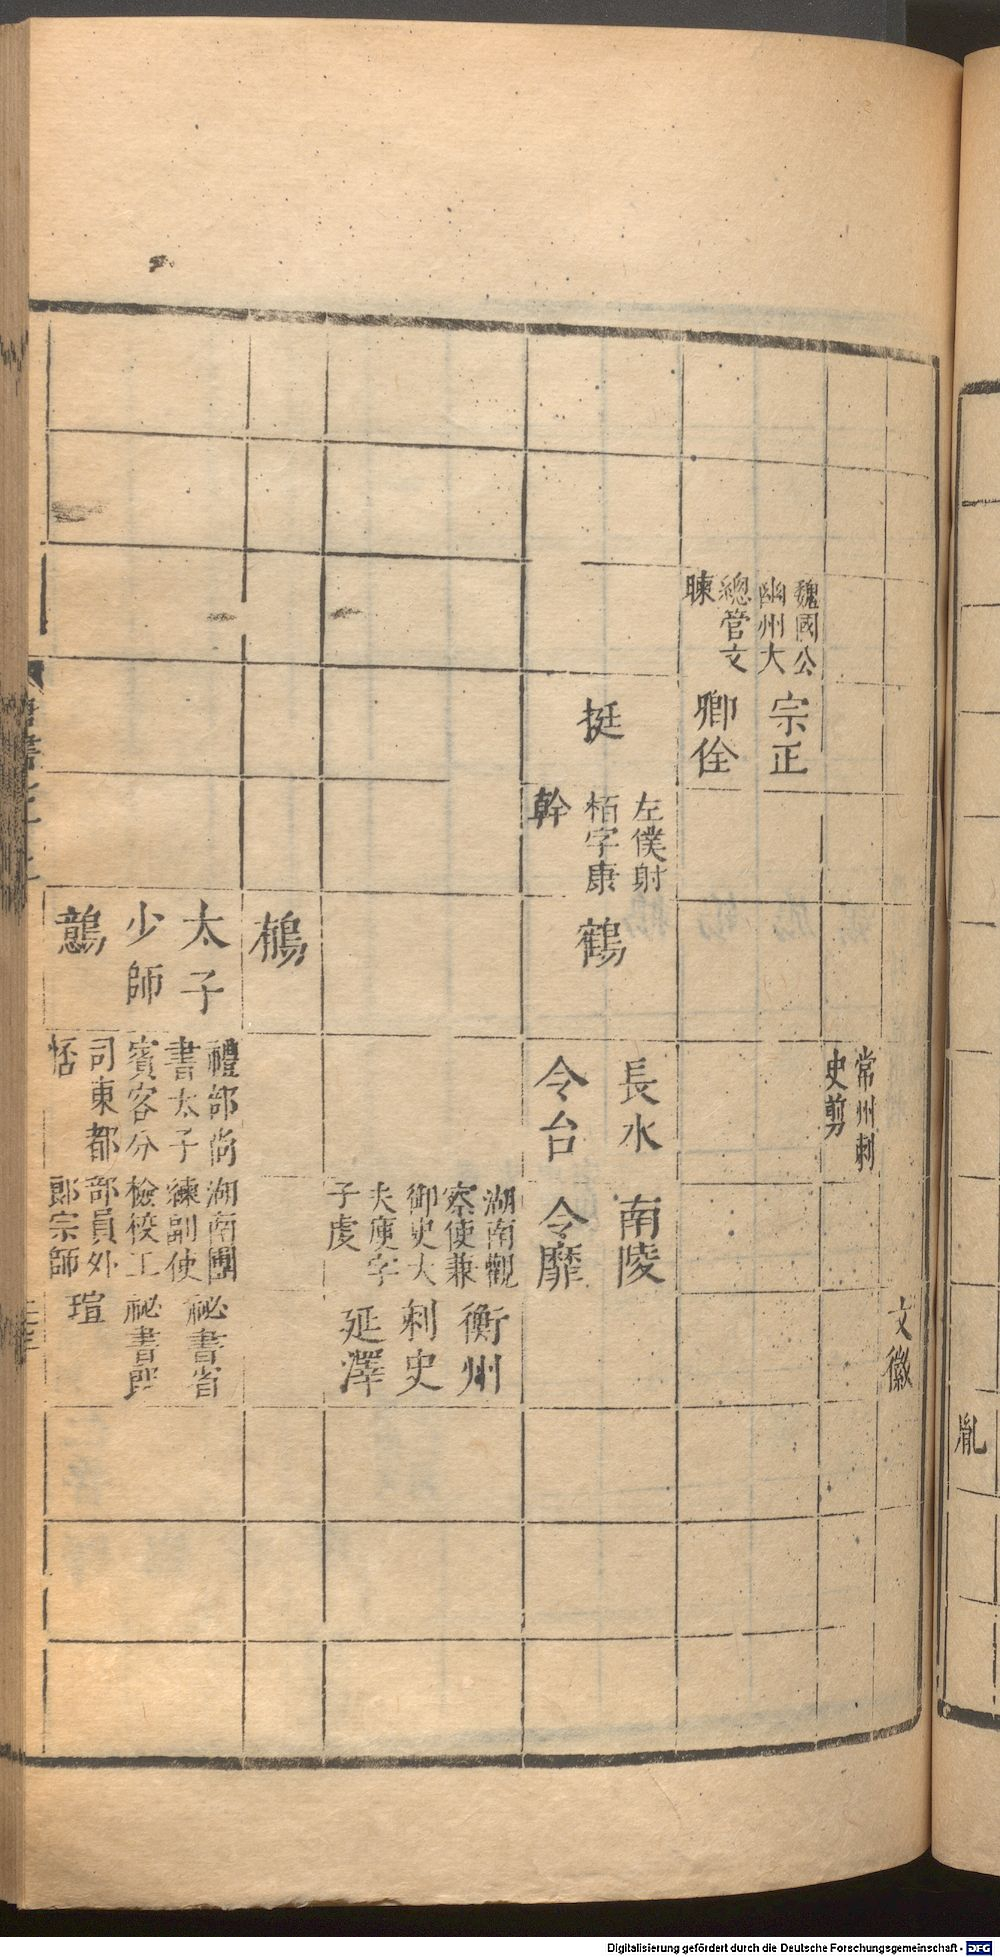 胤
文徽
常州刺
史剪
魏國公
幽州大
總管文
暕
宗正
卿佺
挺
左僕射
栢字康
幹
鶴
長水
令台
南陵
令靡
湖南觀
察使兼
御史大
夫庾字
子虔
衡州
刺史
延澤
太子
少師
禮部尚
書太子
賓客分
司東都
恬
湖南團
練副使
檢校工
部員外
郎宗師
祕書省
祕書郎
瑄
Digitalisierung gefördert durch die Deutsche Forschungsgemeinschaft - DFG